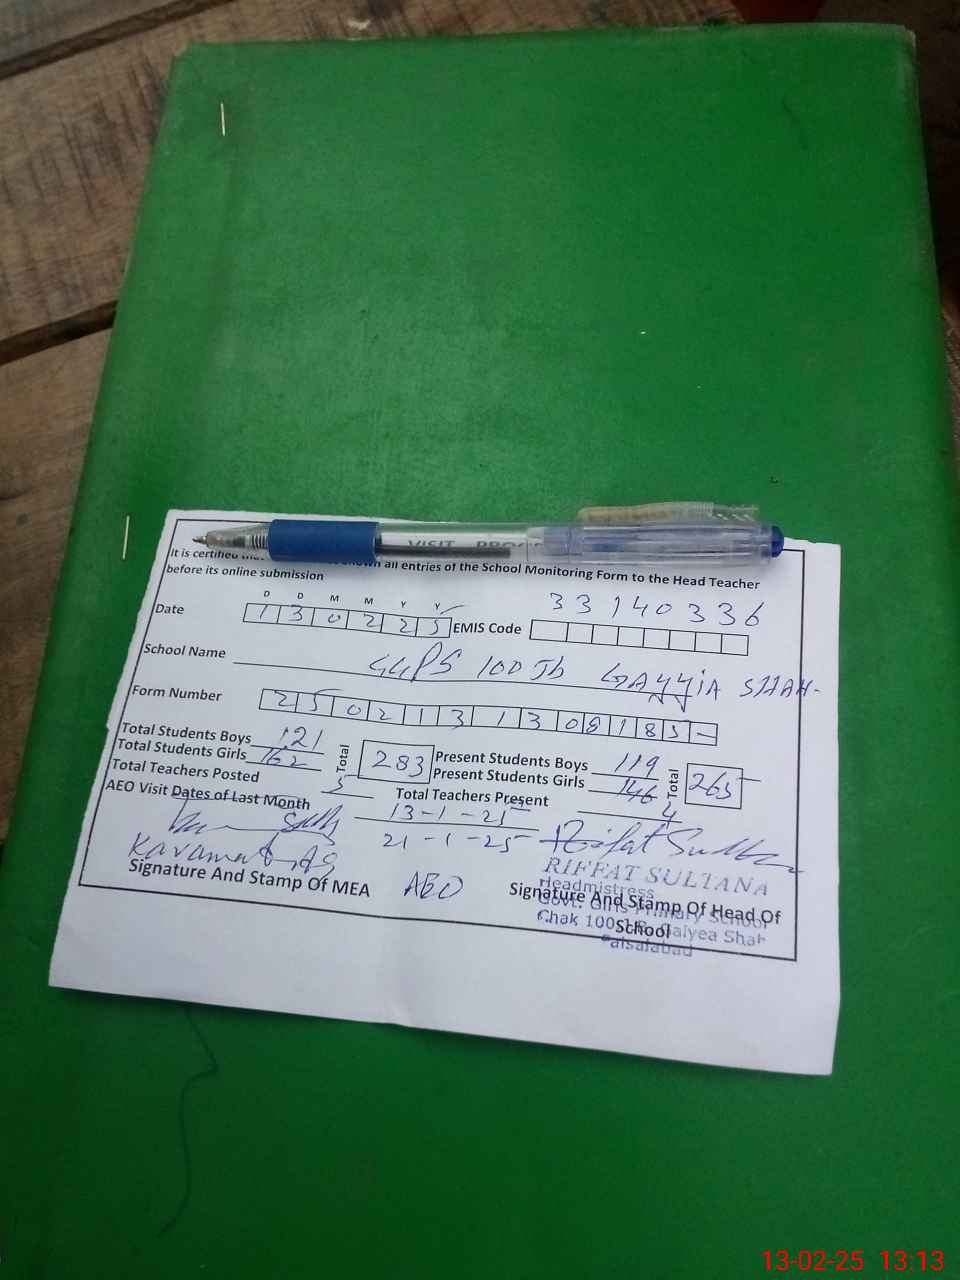 VISIT PROC
It is certified all entries of the School Monitoring Form to the Head Teacher
before its online submission
D D M M Y Y
Date 1 3 0 2 2 5 EMIS Code 33140336
School Name GGPS 100 Jb GAyyiA SHAH-
Form Number 2 5 0 2 1 3 1 3 0 8 1 8 5 -
Total Students Boys 121 Total 283 Present Students Boys 119 Total 265
Total Students Girls 162 Present Students Girls 146
Total Teachers Posted 5 Total Teachers Present 4
AEO Visit Dates of Last Month 13-1-25
21-1-25
Karamat Ali Riffat Sultana
RIFFAT SULTANA
Headmistress
Signature And Stamp Of MEA AEO Signature And Stamp Of Head Of
Govt. Girls Primary School
School
Chak 100 J.B. Gaiyea Shah
Faisalabad
13-02-25 13:13